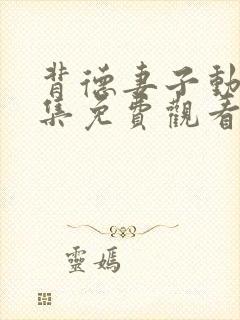 背德妻子動
集免費觀看
靈媽